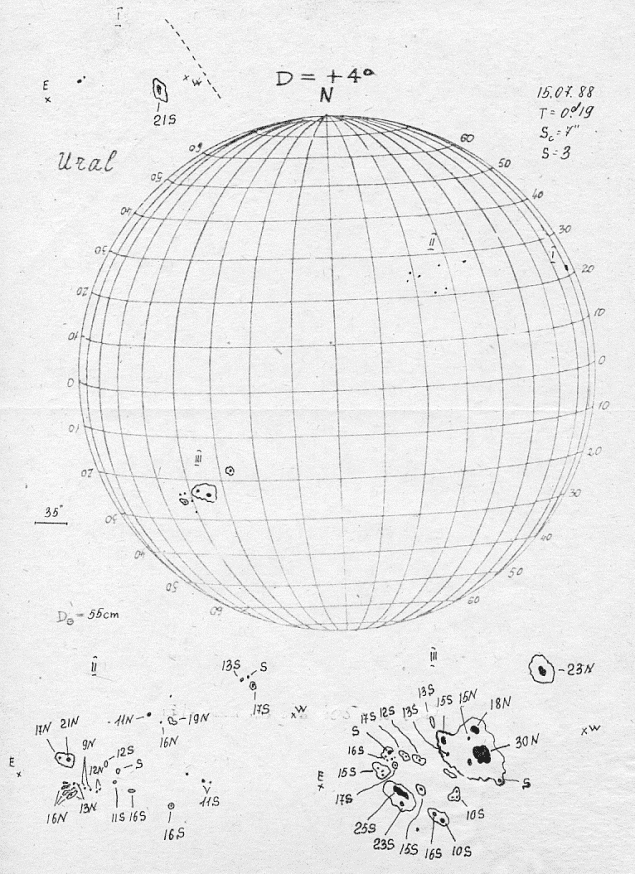 I
E
W
21S
D = +4°
N
15.07.88
T = 0.d19
Sc = 7"
S = 3
Ural
60
60
50
50
40
40
30
30
20
20
10
10
0
0
10
10
20
20
30
30
40
40
50
50
60
60
II
I
III
35"
D☉ = 55cm
II
13S
S
17S
W
17N
21N
11N
19N
16N
9N
12N
12S
S
E
16N
13N
11S
16S
16S
11S
III
23N
13S
15S
15N
18N
13S
12S
17S
S
16S
30N
W
15S
E
17S
S
25S
23S
15S
16S
10S
10S